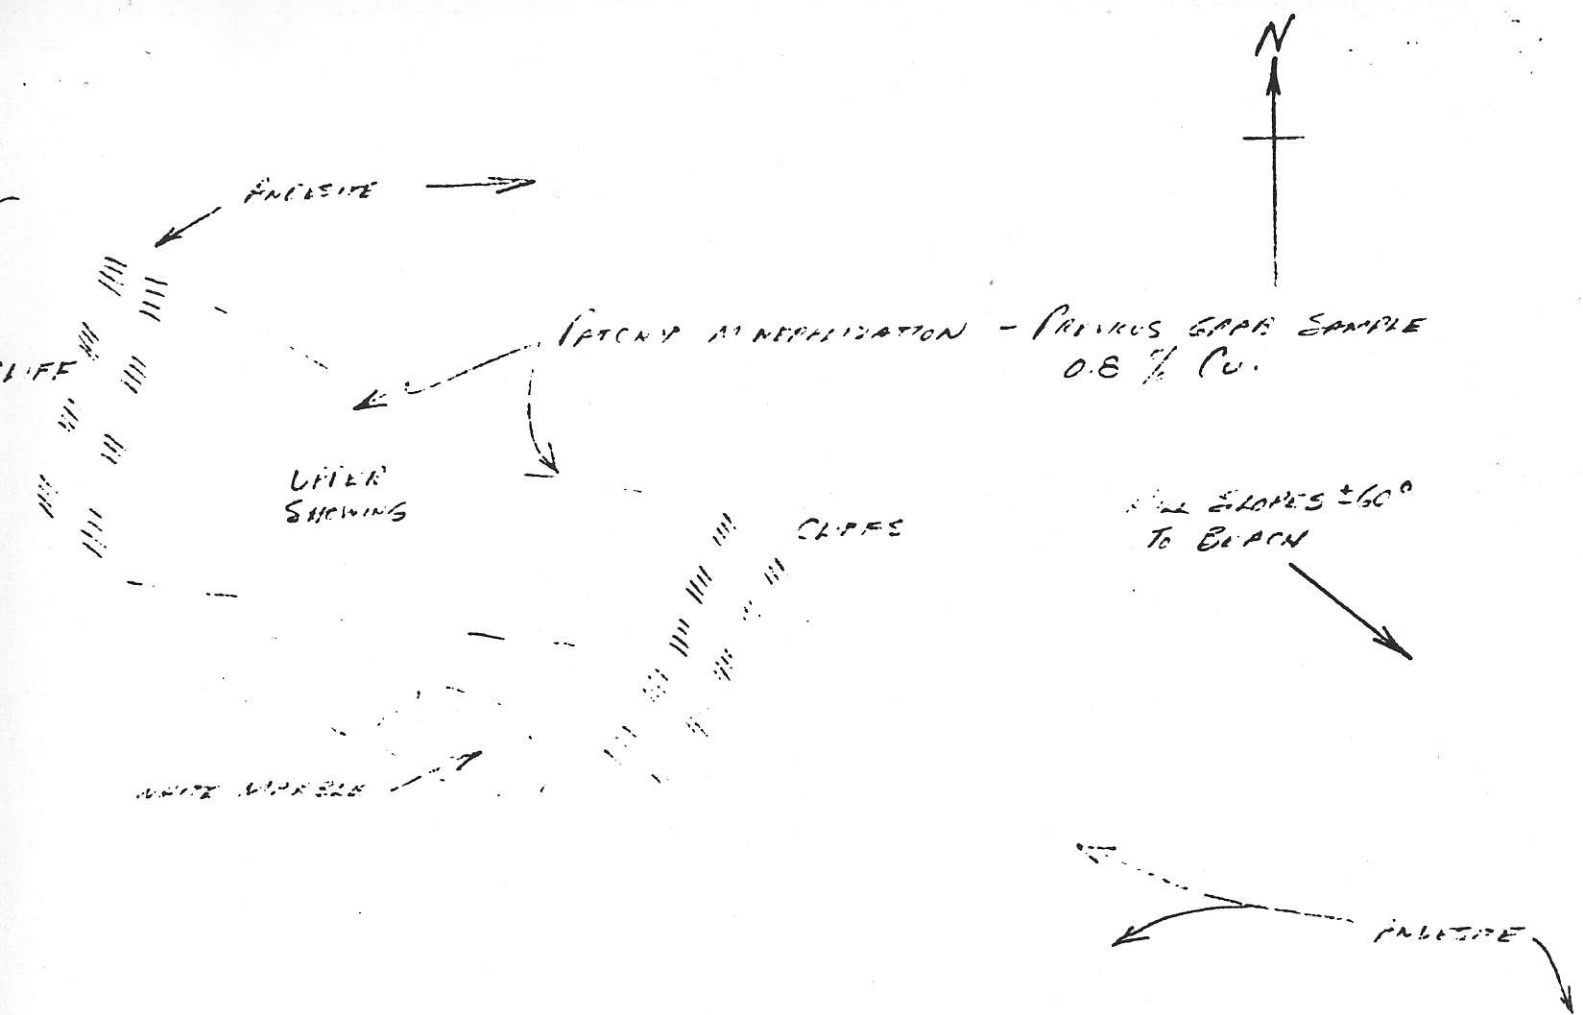 N
ANDESITE
PATCHY MINERALIZATION - PREVIOUS GRAB SAMPLE
0.8 % Cu.
CLIFF
UPPER
SHOWING
CLIFFS
SLOPES ±60°
To BEACH
WHITE MARBLE
ANDESITE